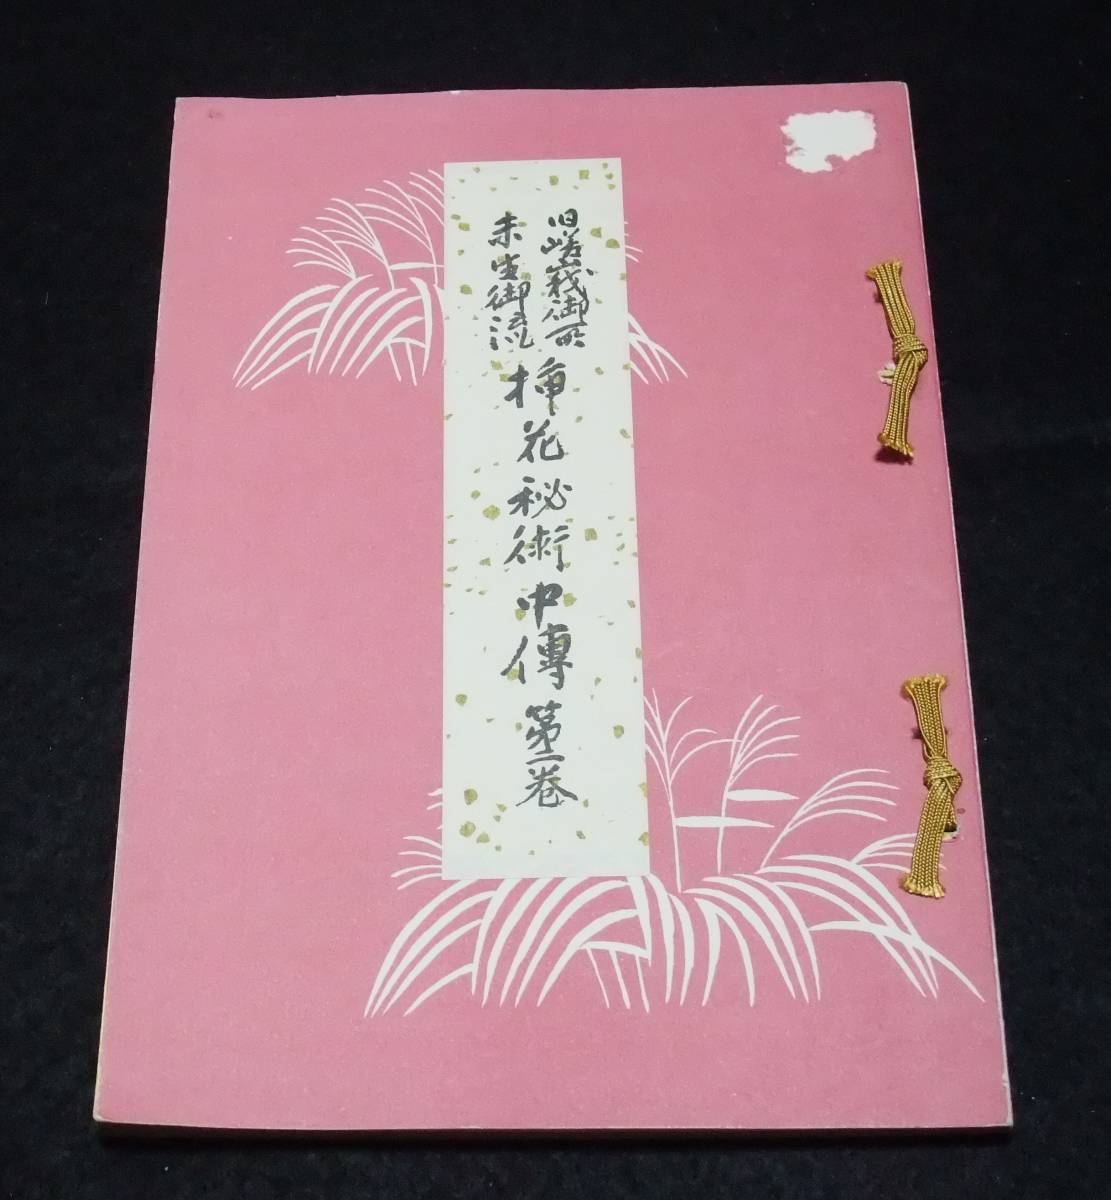 旧嵯峨御所
未生御流
挿花秘術中傳第一巻